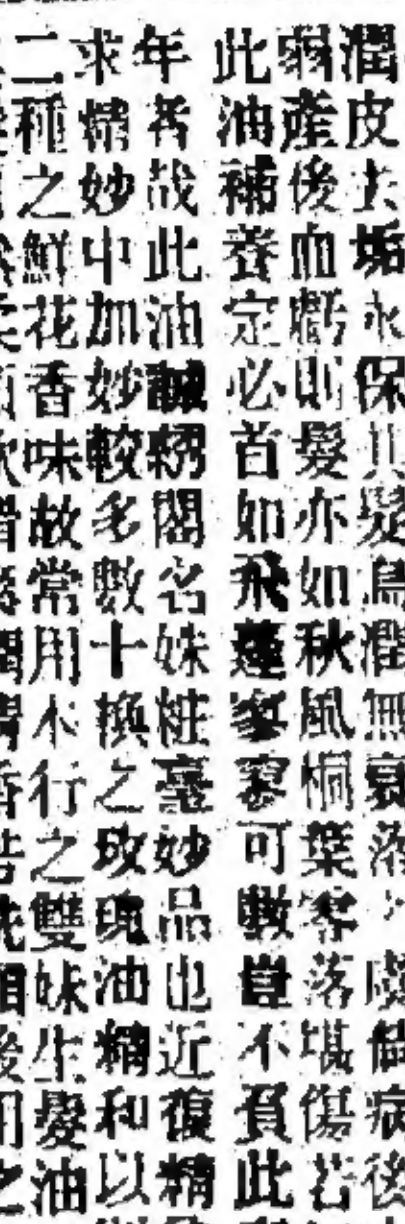 潤皮去垢永保其髮烏潤無衰落之虞倘病後
弱產後血虧則髮亦如秋風桐葉零落堪傷若
此油補養定必首如飛蓬寥寥可數豈不負此
年者哉此油誠綉閣名姝粧臺妙品也近復精
求精妙中加妙較多數十換之玫瑰油精和以
二種之鮮花香味故常用不行之雙妹生髮油